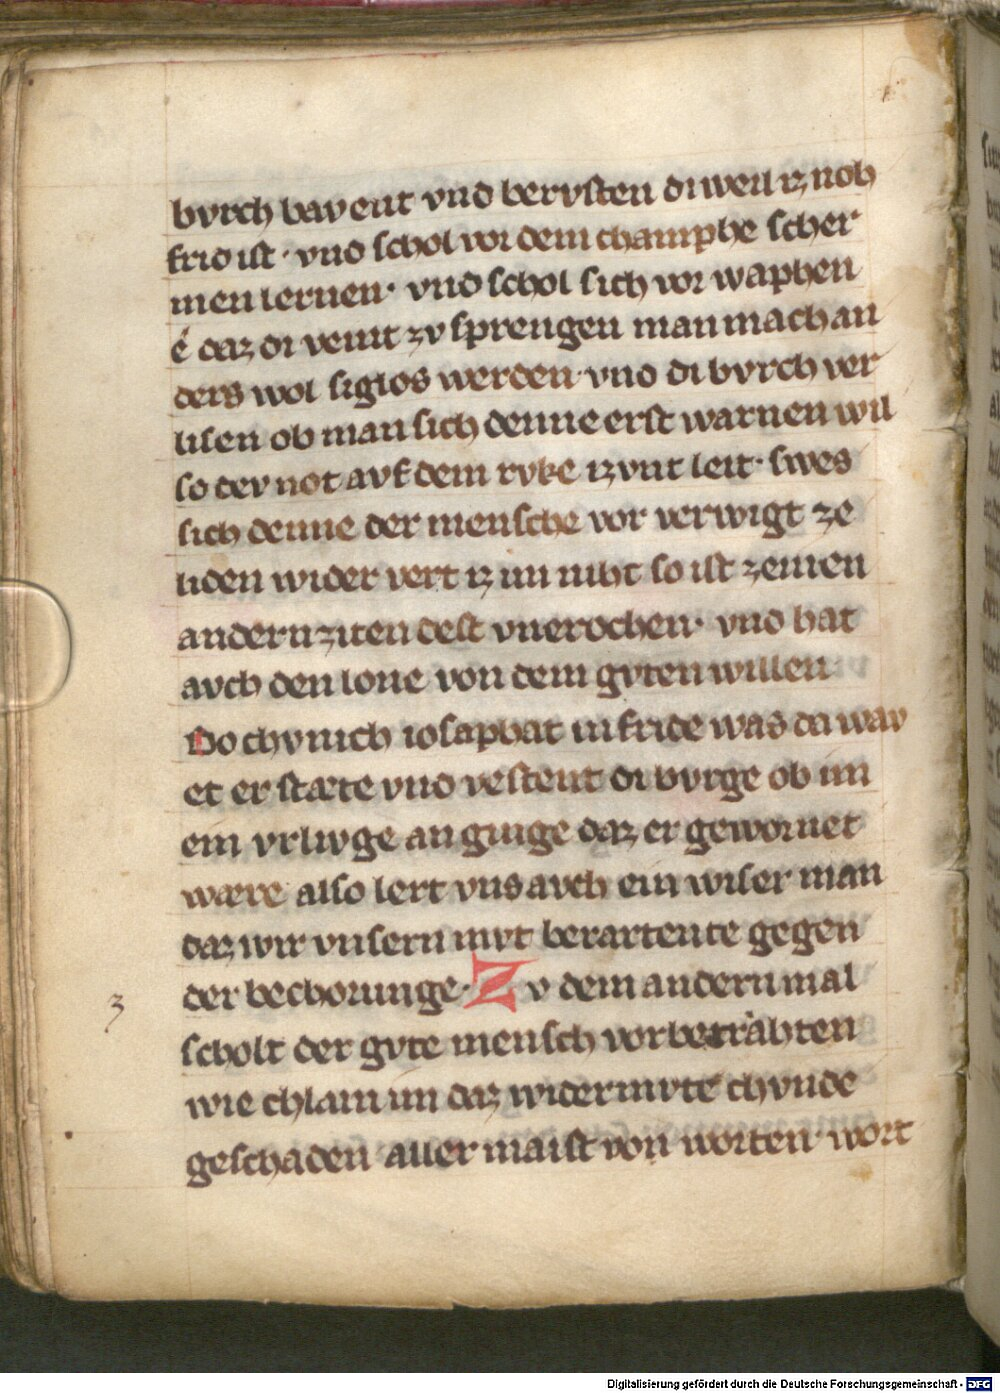 bvrch bavent vnd bervsten di weil iz noh
frid ist · vnd schol vor dem champhe scher
men lernen · vnd schol sich vor waphen
é daz di veint zv sprengen man mach an
ders wol siglos werden · vnd di bvrch ver
lisen ob man sich denne erst warnen wil
so dev not avf dem rvke izvnt leit · swes
sich denne der mensche vor verwigt ze
liden wider vert iz im niht so ist zeinen
andern ziten dest vnerochen · vnd hat
avch den lone von dem gvten willen
Do chvnich iosaphat in fride was da wav
et er stæte vnd vestent di bvrge ob im
ein vrlivge an ginge daz er gewornet
wære also lert vns avch ein wiser man
daz wir vnsern mvt berartente gegen
der bechorunge · Zv dem andern mal
scholt der gvte mensch vor betrahten
wie chlain im daz widermvte chvnde
geschaden aller maist von worten · wort
3
Digitalisierung gefördert durch die Deutsche Forschungsgemeinschaft - DFG